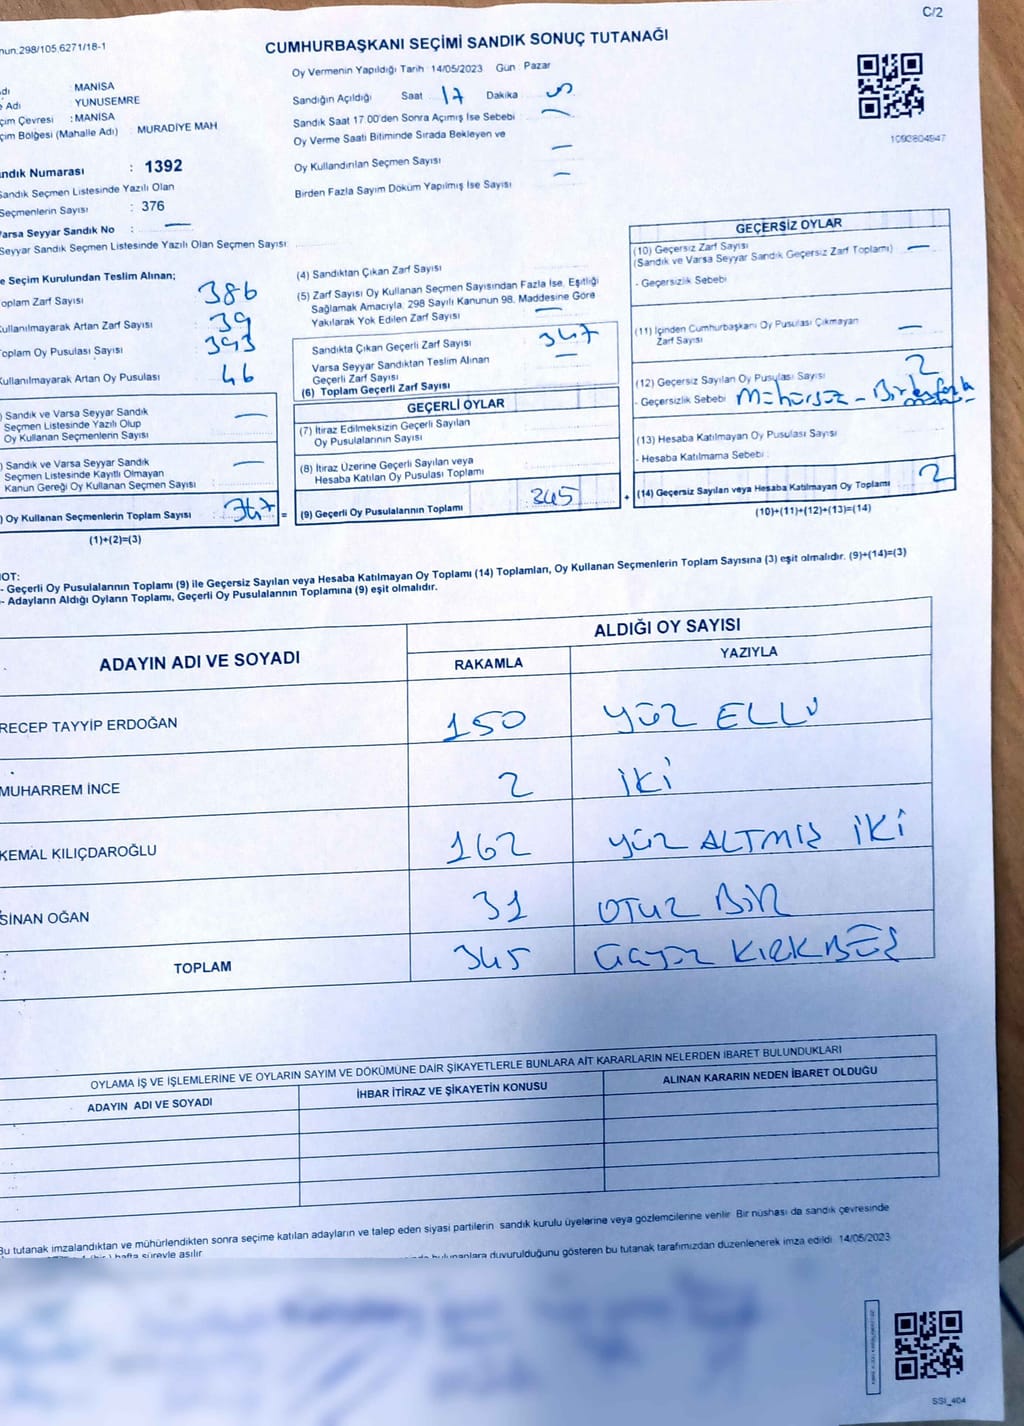 C/2
nun.298/105.6271/18-1
CUMHURBAŞKANI SEÇİMİ SANDIK SONUÇ TUTANAĞI
Oy Vermenin Yapıldığı Tarih : 14/05/2023 Gün : Pazar
dı : MANİSA
e Adı : YUNUSEMRE
çim Çevresi : MANİSA
çim Bölgesi (Mahalle Adı) : MURADİYE MAH
Sandığın Açıldığı Saat 17 Dakika 5
Sandık Saat 17.00'den Sonra Açımış İse Sebebi —
Oy Verme Saati Bitiminde Sırada Bekleyen ve
Oy Kullandırılan Seçmen Sayısı —
Birden Fazla Sayım Döküm Yapılmış İse Sayısı —
1092804947
ndık Numarası : 1392
Sandık Seçmen Listesinde Yazılı Olan
Seçmenlerin Sayısı : 376
Varsa Seyyar Sandık No : —
Seyyar Sandık Seçmen Listesinde Yazılı Olan Seçmen Sayısı:
e Seçim Kurulundan Teslim Alınan;
oplam Zarf Sayısı 386
ullanılmayarak Artan Zarf Sayısı 39
oplam Oy Pusulası Sayısı 393
ullanılmayarak Artan Oy Pusulası 46
) Sandık ve Varsa Seyyar Sandık
Seçmen Listesinde Yazılı Olup
Oy Kullanan Seçmenlerin Sayısı —
) Sandık ve Varsa Seyyar Sandık
Seçmen Listesinde Kayıtlı Olmayan
Kanun Gereği Oy Kullanan Seçmen Sayısı —
) Oy Kullanan Seçmenlerin Toplam Sayısı 347 =
(1)+(2)=(3)
(4) Sandıktan Çıkan Zarf Sayısı
(5) Zarf Sayısı Oy Kullanan Seçmen Sayısından Fazla İse, Eşitliği
Sağlamak Amacıyla, 298 Sayılı Kanunun 98. Maddesine Göre
Yakılarak Yok Edilen Zarf Sayısı —
Sandıkta Çıkan Geçerli Zarf Sayısı 347
Varsa Seyyar Sandıktan Teslim Alınan
Geçerli Zarf Sayısı —
(6) Toplam Geçerli Zarf Sayısı
GEÇERLİ OYLAR
(7) İtiraz Edilmeksizin Geçerli Sayılan
Oy Pusulalarının Sayısı
(8) İtiraz Üzerine Geçerli Sayılan veya
Hesaba Katılan Oy Pusulası Toplamı
(9) Geçerli Oy Pusulalarının Toplamı 345 +
GEÇERSİZ OYLAR
(10) Geçersiz Zarf Sayısı —
(Sandık ve Varsa Seyyar Sandık Geçersiz Zarf Toplamı)
- Geçersizlik Sebebi
(11) İçinden Cumhurbaşkanı Oy Pusulası Çıkmayan
Zarf Sayısı —
(12) Geçersiz Sayılan Oy Pusulası Sayısı 2
- Geçersizlik Sebebi Mühürsüz - Birden fazla
(13) Hesaba Katılmayan Oy Pusulası Sayısı
- Hesaba Katılmama Sebebi :
(14) Geçersiz Sayılan veya Hesaba Katılmayan Oy Toplamı 2
(10)+(11)+(12)+(13)=(14)
NOT:
- Geçerli Oy Pusulalarının Toplamı (9) ile Geçersiz Sayılan veya Hesaba Katılmayan Oy Toplamı (14) Toplamları, Oy Kullanan Seçmenlerin Toplam Sayısına (3) eşit olmalıdır. (9)+(14)=(3)
- Adayların Aldığı Oyların Toplamı, Geçerli Oy Pusulalarının Toplamına (9) eşit olmalıdır.
ADAYIN ADI VE SOYADI
ALDIĞI OY SAYISI
RAKAMLA YAZIYLA
RECEP TAYYİP ERDOĞAN 150 YÜZ ELLİ
MUHARREM İNCE 2 İKİ
KEMAL KILIÇDAROĞLU 162 YÜZ ALTMIŞ İKİ
SİNAN OĞAN 31 OTUZ BİR
TOPLAM 345 ÜÇYÜZ KIRKBEŞ
OYLAMA İŞ VE İŞLEMLERİNE VE OYLARIN SAYIM VE DÖKÜMÜNE DAİR ŞİKAYETLERLE BUNLARA AİT KARARLARIN NELERDEN İBARET BULUNDUKLARI
ADAYIN ADI VE SOYADI İHBAR İTİRAZ VE ŞİKAYETİN KONUSU ALINAN KARARIN NEDEN İBARET OLDUĞU
Bu tutanak imzalandıktan ve mühürlendikten sonra seçime katılan adayların ve talep eden siyasi partilerin sandık kurulu üyelerine veya gözlemcilerine verilir. Bir nüshası da sandık çevresinde
(bir) hafta süreyle asılır
bulunanlara duyurulduğunu gösteren bu tutanak tarafımızdan düzenlenerek imza edildi. 14/05/2023
SSİ_404